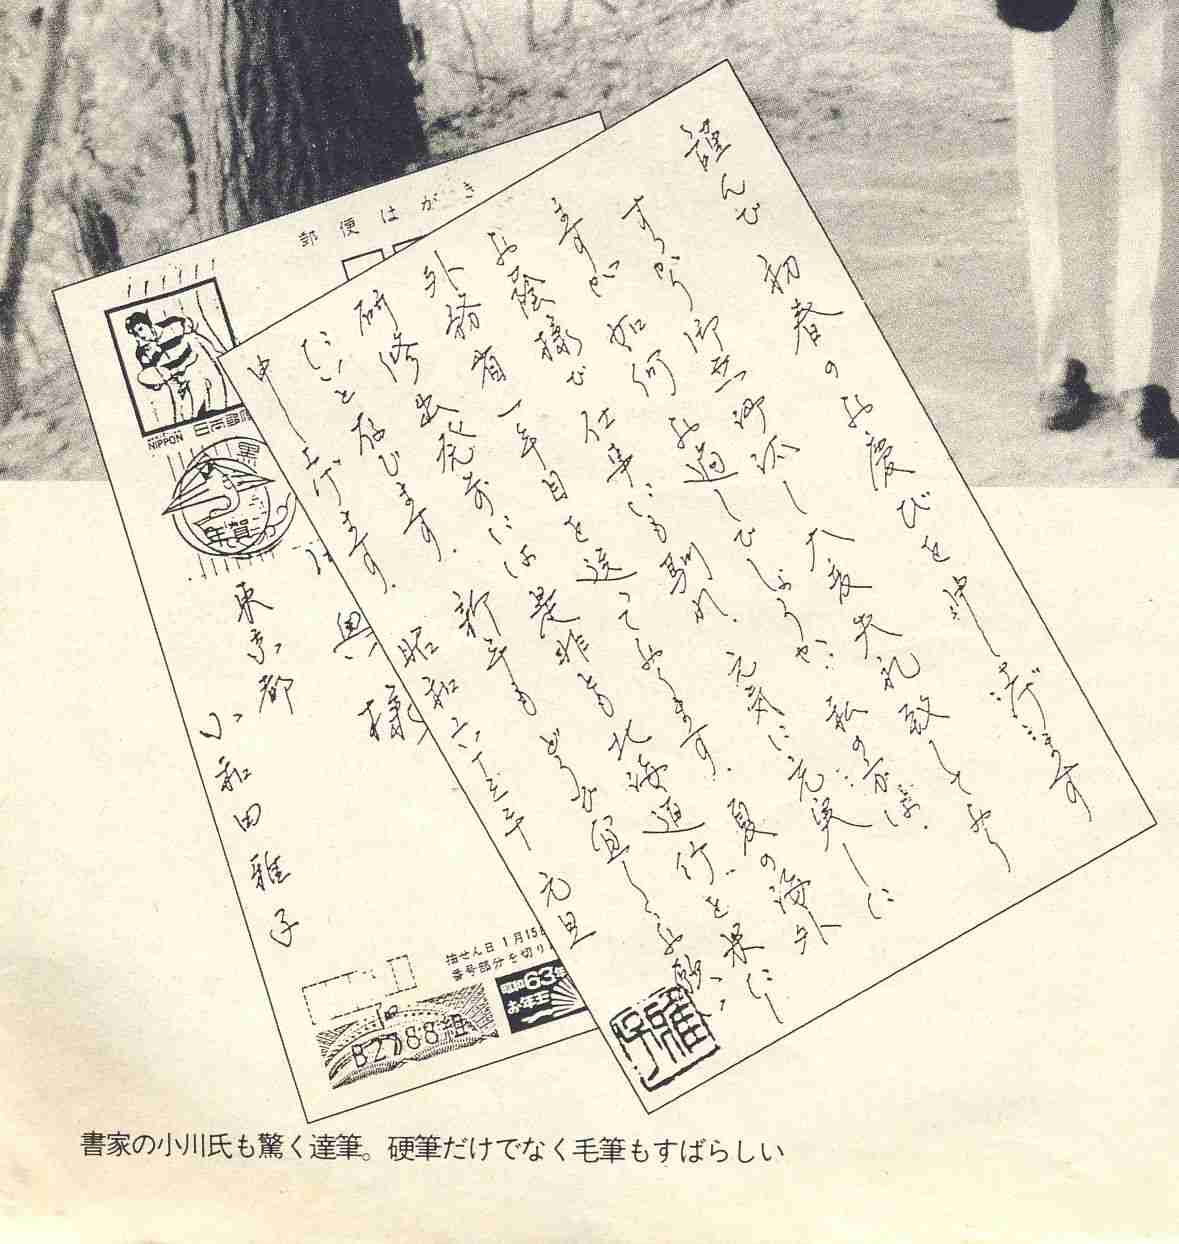 郵便はがき
NIPPON
年賀
東京都
小和田雅子
興様
抽せん日 1月15
番号部分を切り
昭和63年
お年玉
B2788組
謹んで初春のお慶びを申し上げます
すっかり御無沙汰し大変失礼致しており
ますが如何お過しでしょうか。私の方は、
お蔭様で仕事にも馴れ、元気に充実した
外務省一年目を送っております。夏の海外
研修出発前には是非とも北海道行を果たし
たいと存じます。新年もどうぞ宜しくお願い
申し上げます。
昭和六十三年 元旦
雅子
書家の小川氏も驚く達筆。硬筆だけでなく毛筆もすばらしい